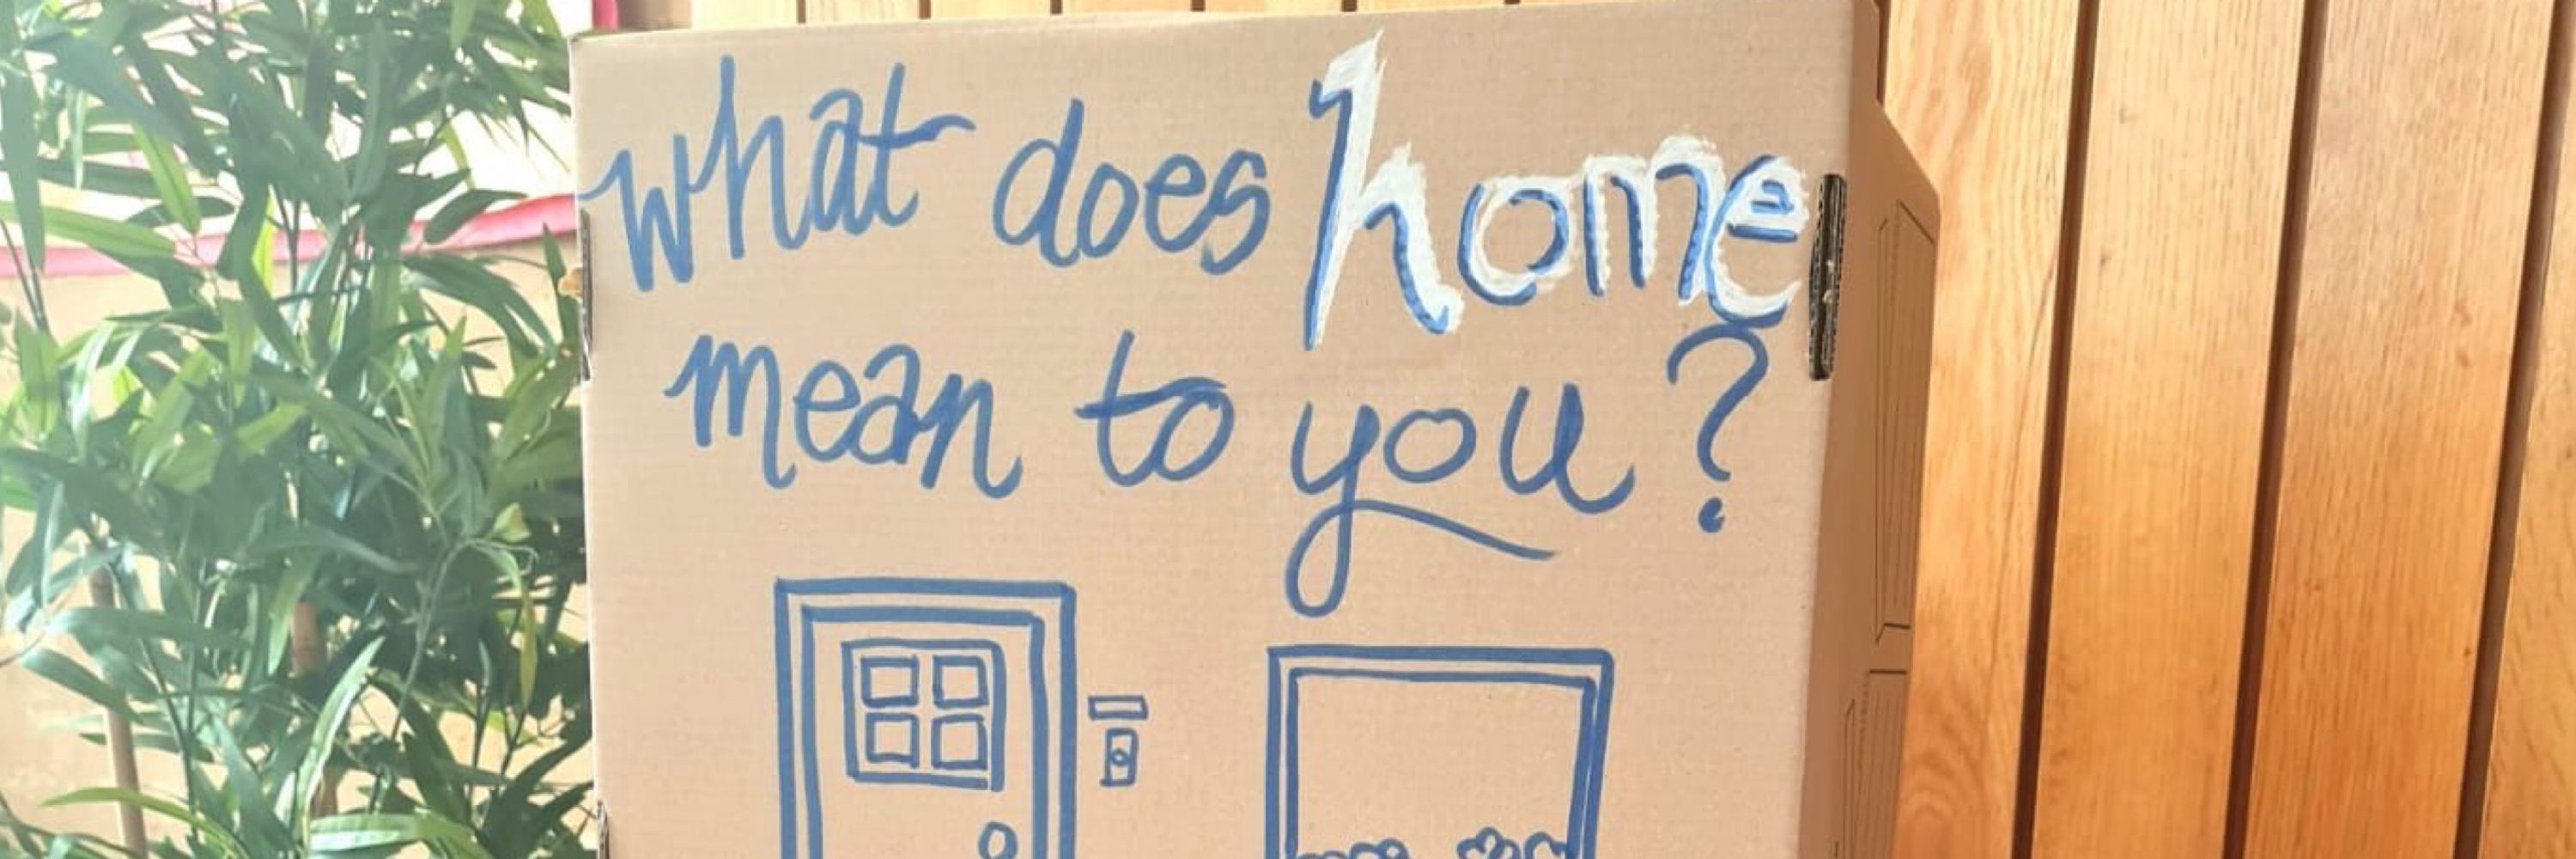 what does home
mean to you?